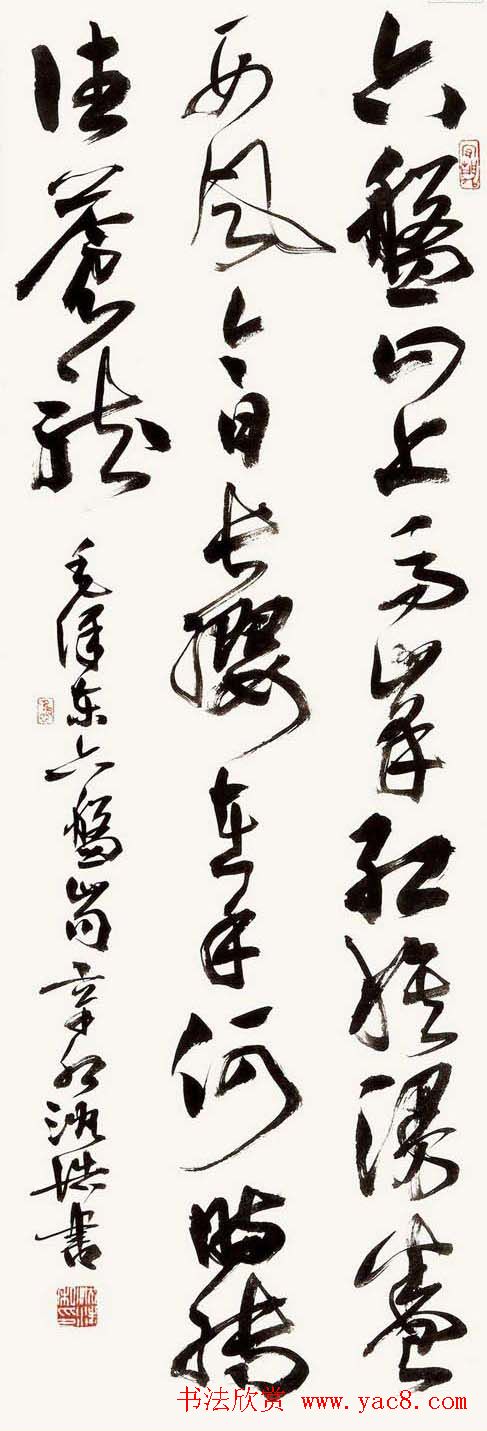 六盤山上高峰红旗漫卷
西风今日长纓在手何时縛
住蒼龍
毛泽东六盤山 辛卯沈浩書
书法欣赏 www.yac8.com